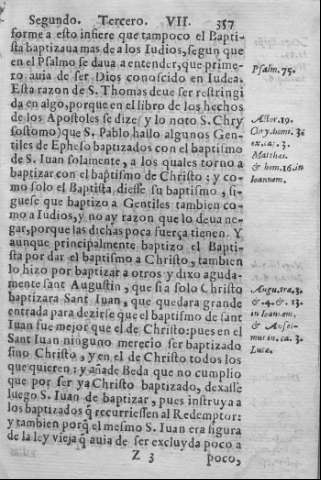 Segundo. Tercero. VII. 357
forme a esto infiere que tampoco el Bapti-
sta baptizaua mas de a los Iudios, segun que
en el Psalmo se daua a entender, que prime-
ro auia de ser Dios conoscido en Iudea.
Psalm. 75.
Esta razon de S. Thomas deue ser restringi
da en algo, porque en el libro de los hechos
de los Apostoles se dize (y lo noto S. Chry
sostomo) que S. Pablo hallo algunos Gen-
tiles de Epheso baptizados con el baptismo
de S. Iuan solamente, a los quales torno a
baptizar con el baptismo de Christo: y co
mo solo el Baptista diesse su baptismo, si-
guese que baptizo a Gentiles tambien co-
mo a Iudios, y no ay razon que lo deua ne-
gar, porque las dichas poca fuerça tienen. Y
Actor. 19.
Chry. homi. 3
ex. ca. 3.
Matthei.
& hom. 16. in
Ioannem.
aunque principalmente baptizo el Bapti-
sta por dar el baptismo a Christo, tambien
lo hizo por baptizar a otros y dixo aguda-
mente sant Augustin, que si a solo Christo
baptizara Sant Iuan, que quedara grande
entrada para dezirse que el baptismo de sant
Iuan fue mejor que el de Christo: pues en el
Sant Iuan ninguno merecio ser baptizado
sino Christo, y en el de Christo todos los
que quieren: y añade Beda que no cumplio
que por ser ya Christo baptizado, dexasse
luego S. Iuan de baptizar, pues instruya a
los baptizados q̃ recurriessen al Redemptor:
y tambien porq̃ el mesmo S. Iuan era figura
de la ley vieja q̃ auia de ser excluyda poco a
Augu. tra. 3.
& 4. & . 13.
in Ioannem.
& Ansel-
mus in. ca. 3.
Lucæ.
Z 3 poco,